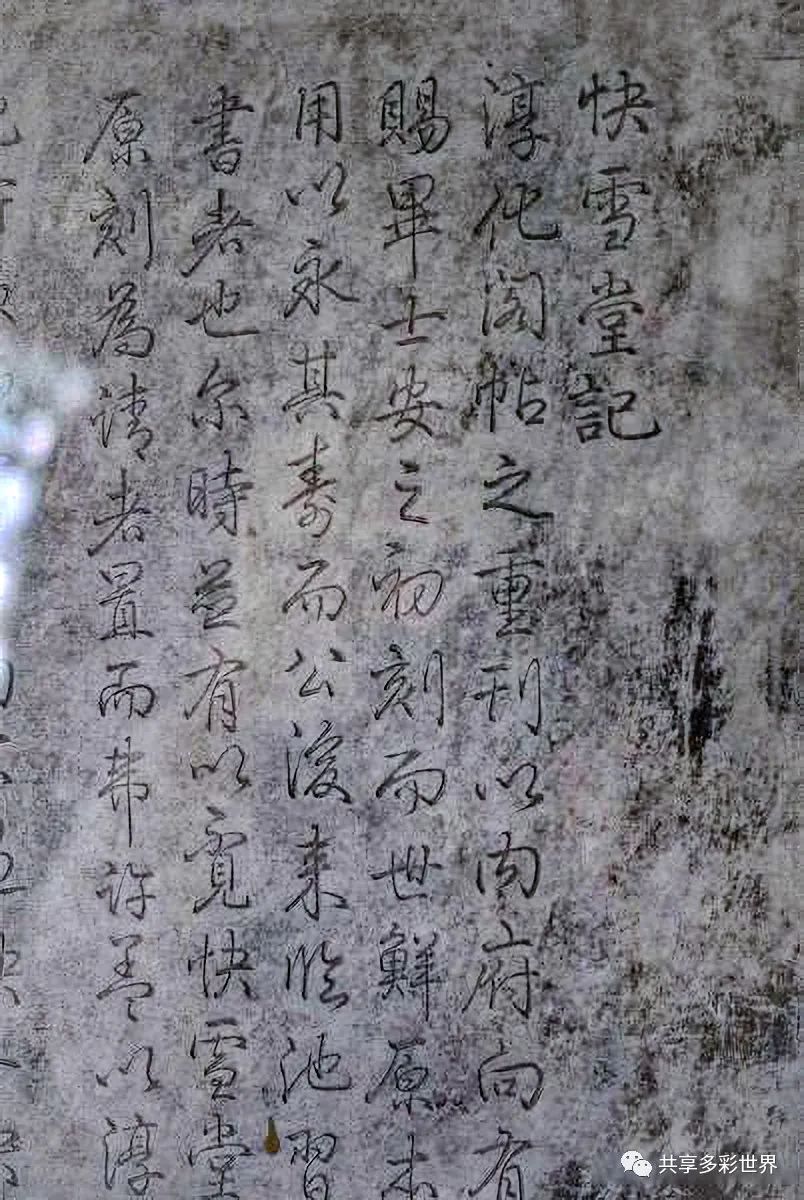 快雪堂記
淳化閣帖之重刊以内府向有
賜畢士安之初刻而世鮮原本
用以永其壽而公後来臨池習
書者也尔時並有以覓快雪堂
原刻為請者置而弗許盖以淳
共享多彩世界